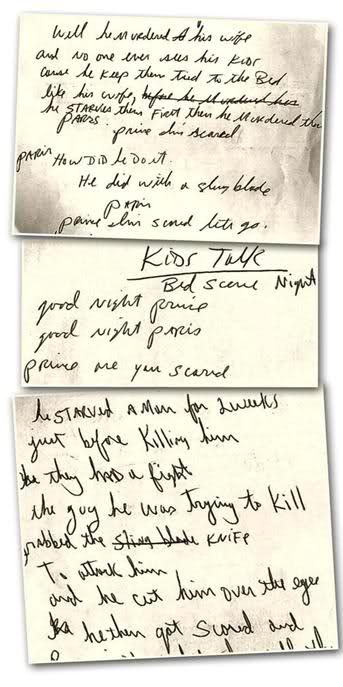 Well he Murdered his wife
and no one ever sees his Kids
cause he keep them tied to the Bed
like his wife, before he Murdered her
he STARVES them First then he Murdered them
PARIS
prince I'm scared
PARIS How DiD he Do it.
He did with a sling blade
PARIS
prince I'm scared let's go.
Kids Talk
Bed Scene Night
good night prince
good night PARIS
prince are you scared
he STARVED A MAN for 2 weeks
just before Killing him
they HAD A fight
the guy he was trying to kill
grabbed the sling blade KNiFe
To attack him
and he cut him over the eyes
he then got scared and